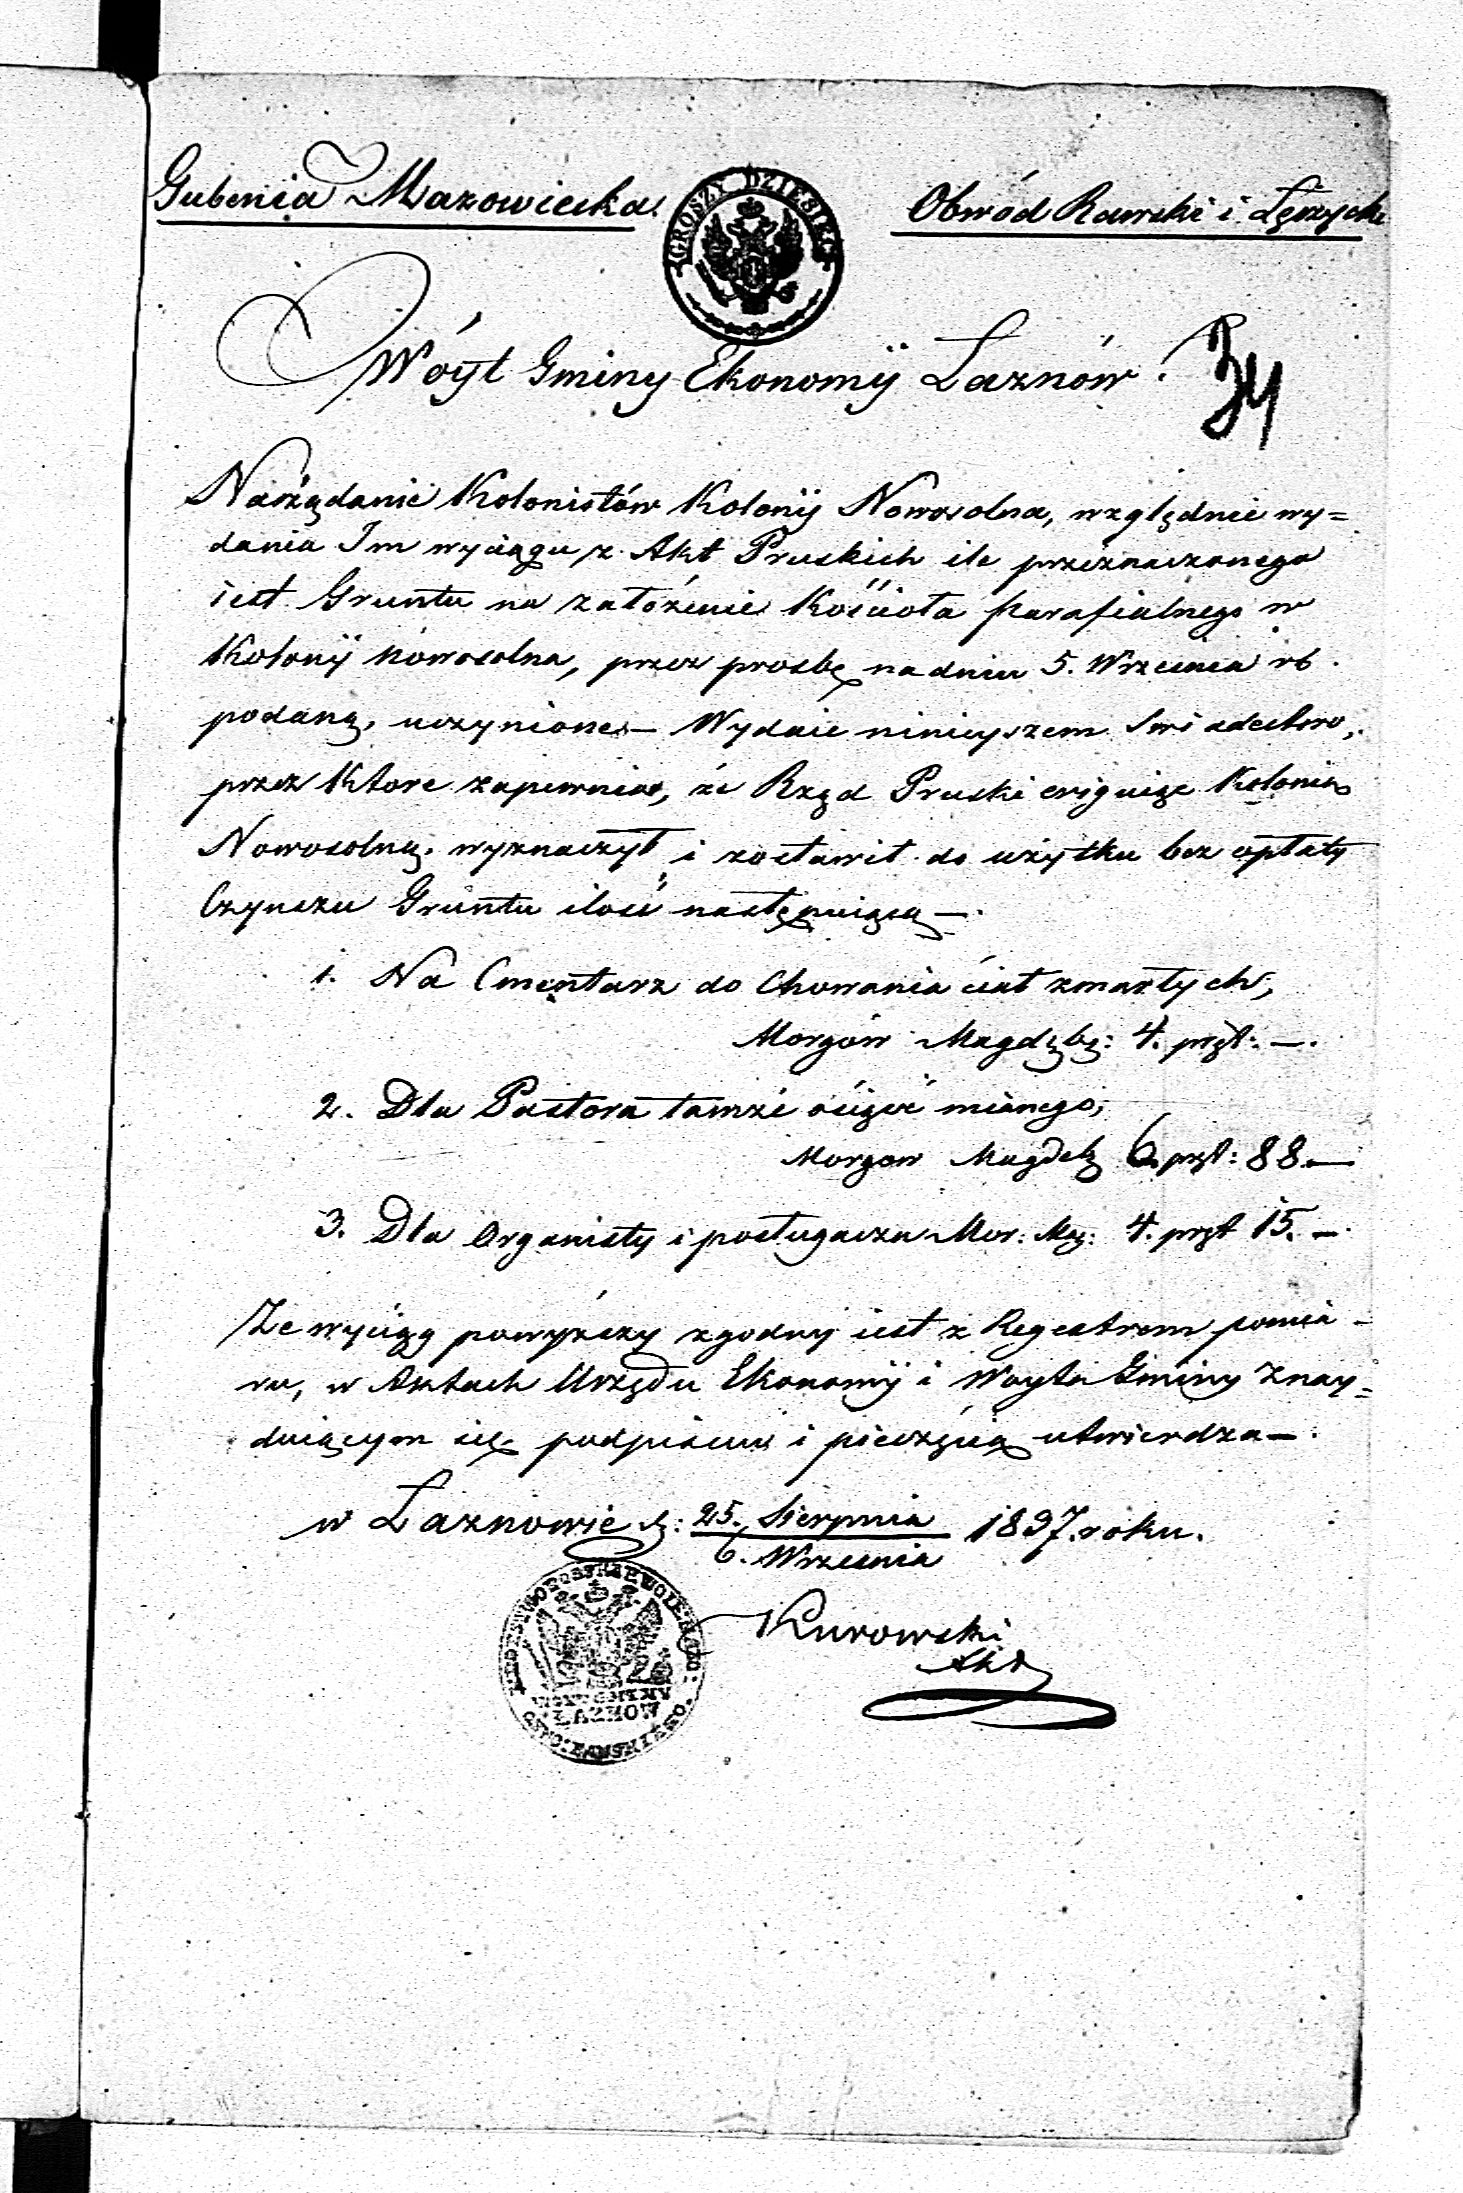 Gubernia Mazowiecka.
GROSZY DZIESIEC
Obwód Rawski i Łęczycki
Wóyt Gminy Ekonomij Łaznów.
34
Na żądanie Kolonistów Kolonij Nowosolna, względnie wy=
dania Im wyciągu z Akt Pruskich ile przeznaczonego
iest Gruntu na założenie Kościoła parafialnego w
Kolonij Nowosolna, przez prosbę na dniu 5. Września rb.
podaną, uczynione — Wydaie ninieyszem Swiadectwo,
przez Ktore zapewnia, że Rząd Pruski eriguiąc Kolonią
Nowosolną, wyznaczył i zostawił do użytku bez opłaty
Czynszu Gruntu ilość następuiącą —
1. Na Cmentarz do Chowania ciał zmarłych,
Morgów Magdebg: 4. pręt: —.
2. Dla Pastora tamże osiąść mianego,
Morgow Magdeb 6. pręt: 88. —
3. Dla Organisty i posługacza Mor: Mag: 4. pręt 15. —
Ze wyciąg powyższy zgodny iest z Regestrem pomia=
ru, w Aktach Urzędu Ekonomij i Woyta Gminy znay=
duiącym się podpisem i pieczęcią utwierdza —.
w Łaznowie d: 25. Sierpnia
6. Września 1837. roku.
Kurowski
ŁAZNOW